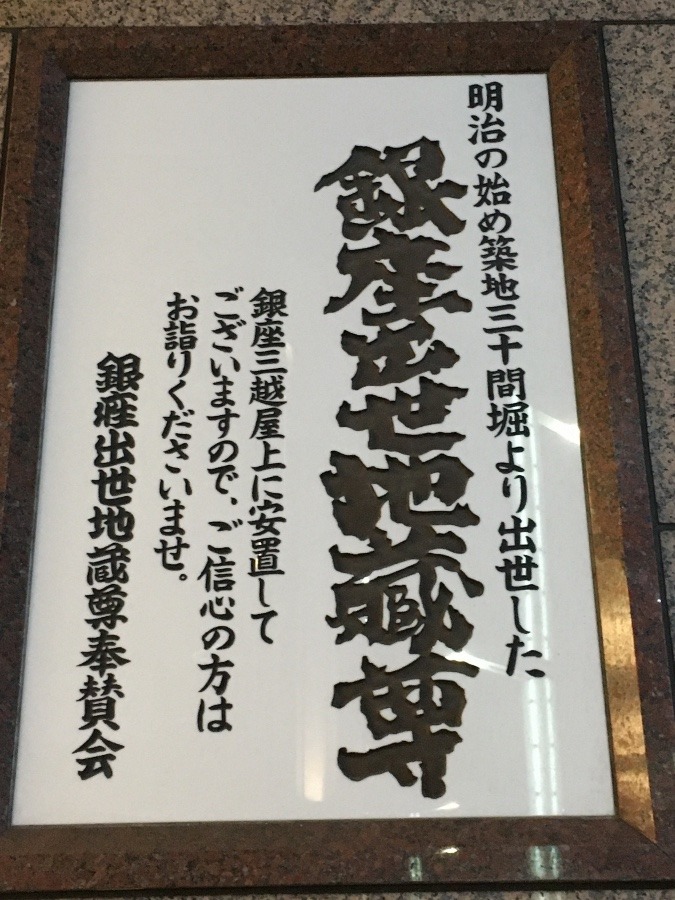 明治の始め築地三十間堀より出世した
銀座出世地蔵尊
銀座三越屋上に安置して
ございますので、ご信心の方は
お詣りくださいませ。
銀座出世地蔵尊奉賛会